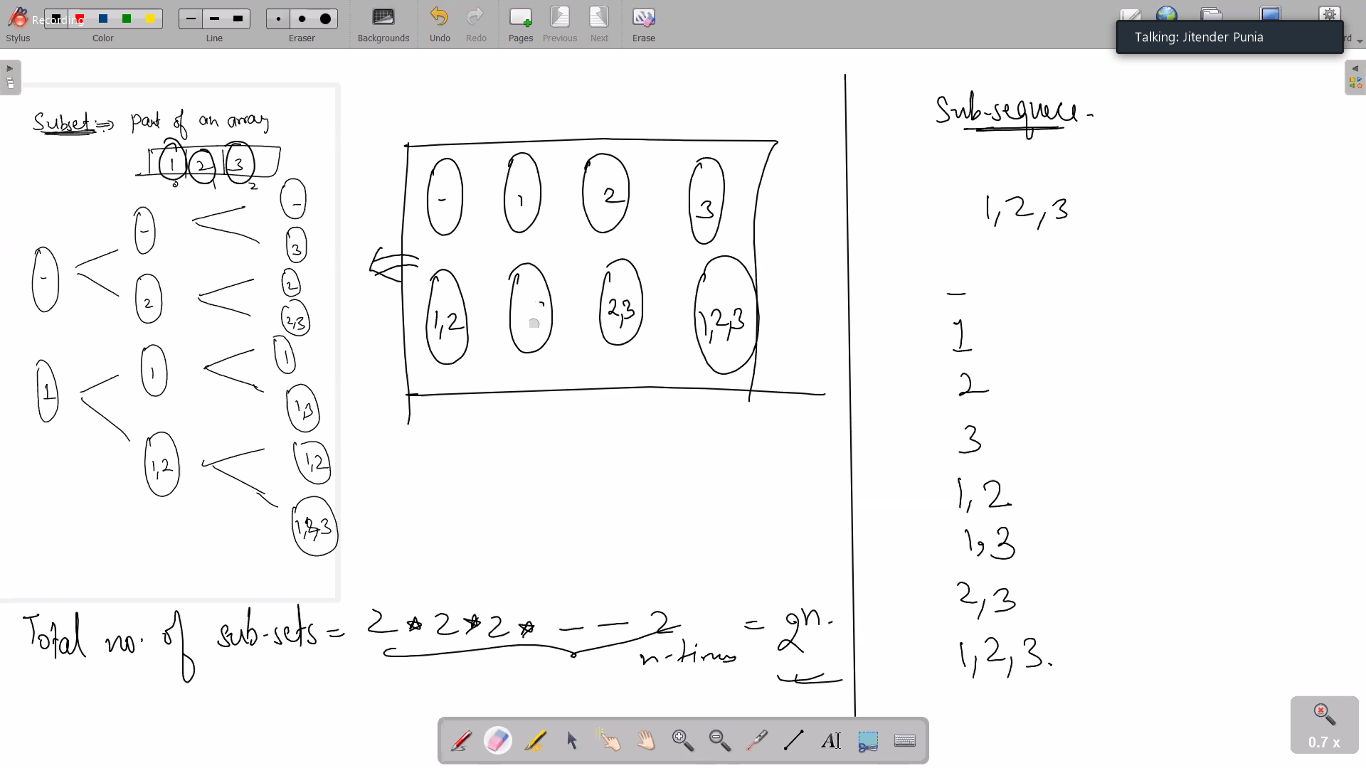 Recording
Stylus
Color
Line
Eraser
Backgrounds
Undo
Redo
Pages
Previous
Next
Erase
Talking: Jitender Punia
Subset ⇒ part of an array
1 2 3
0 1 2
-
1
-
2
1
1,2
-
3
2
2,3
1
1,3
1,2
1,2,3
- 1 2 3
1,2 , 2,3 1,2,3
Total no. of sub-sets = 2 * 2 * 2 * — — 2 = 2ⁿ.
n-times
Sub-sequece -
1,2,3
-
1
2
3
1,2
1,3
2,3
1,2,3.
0.7 x